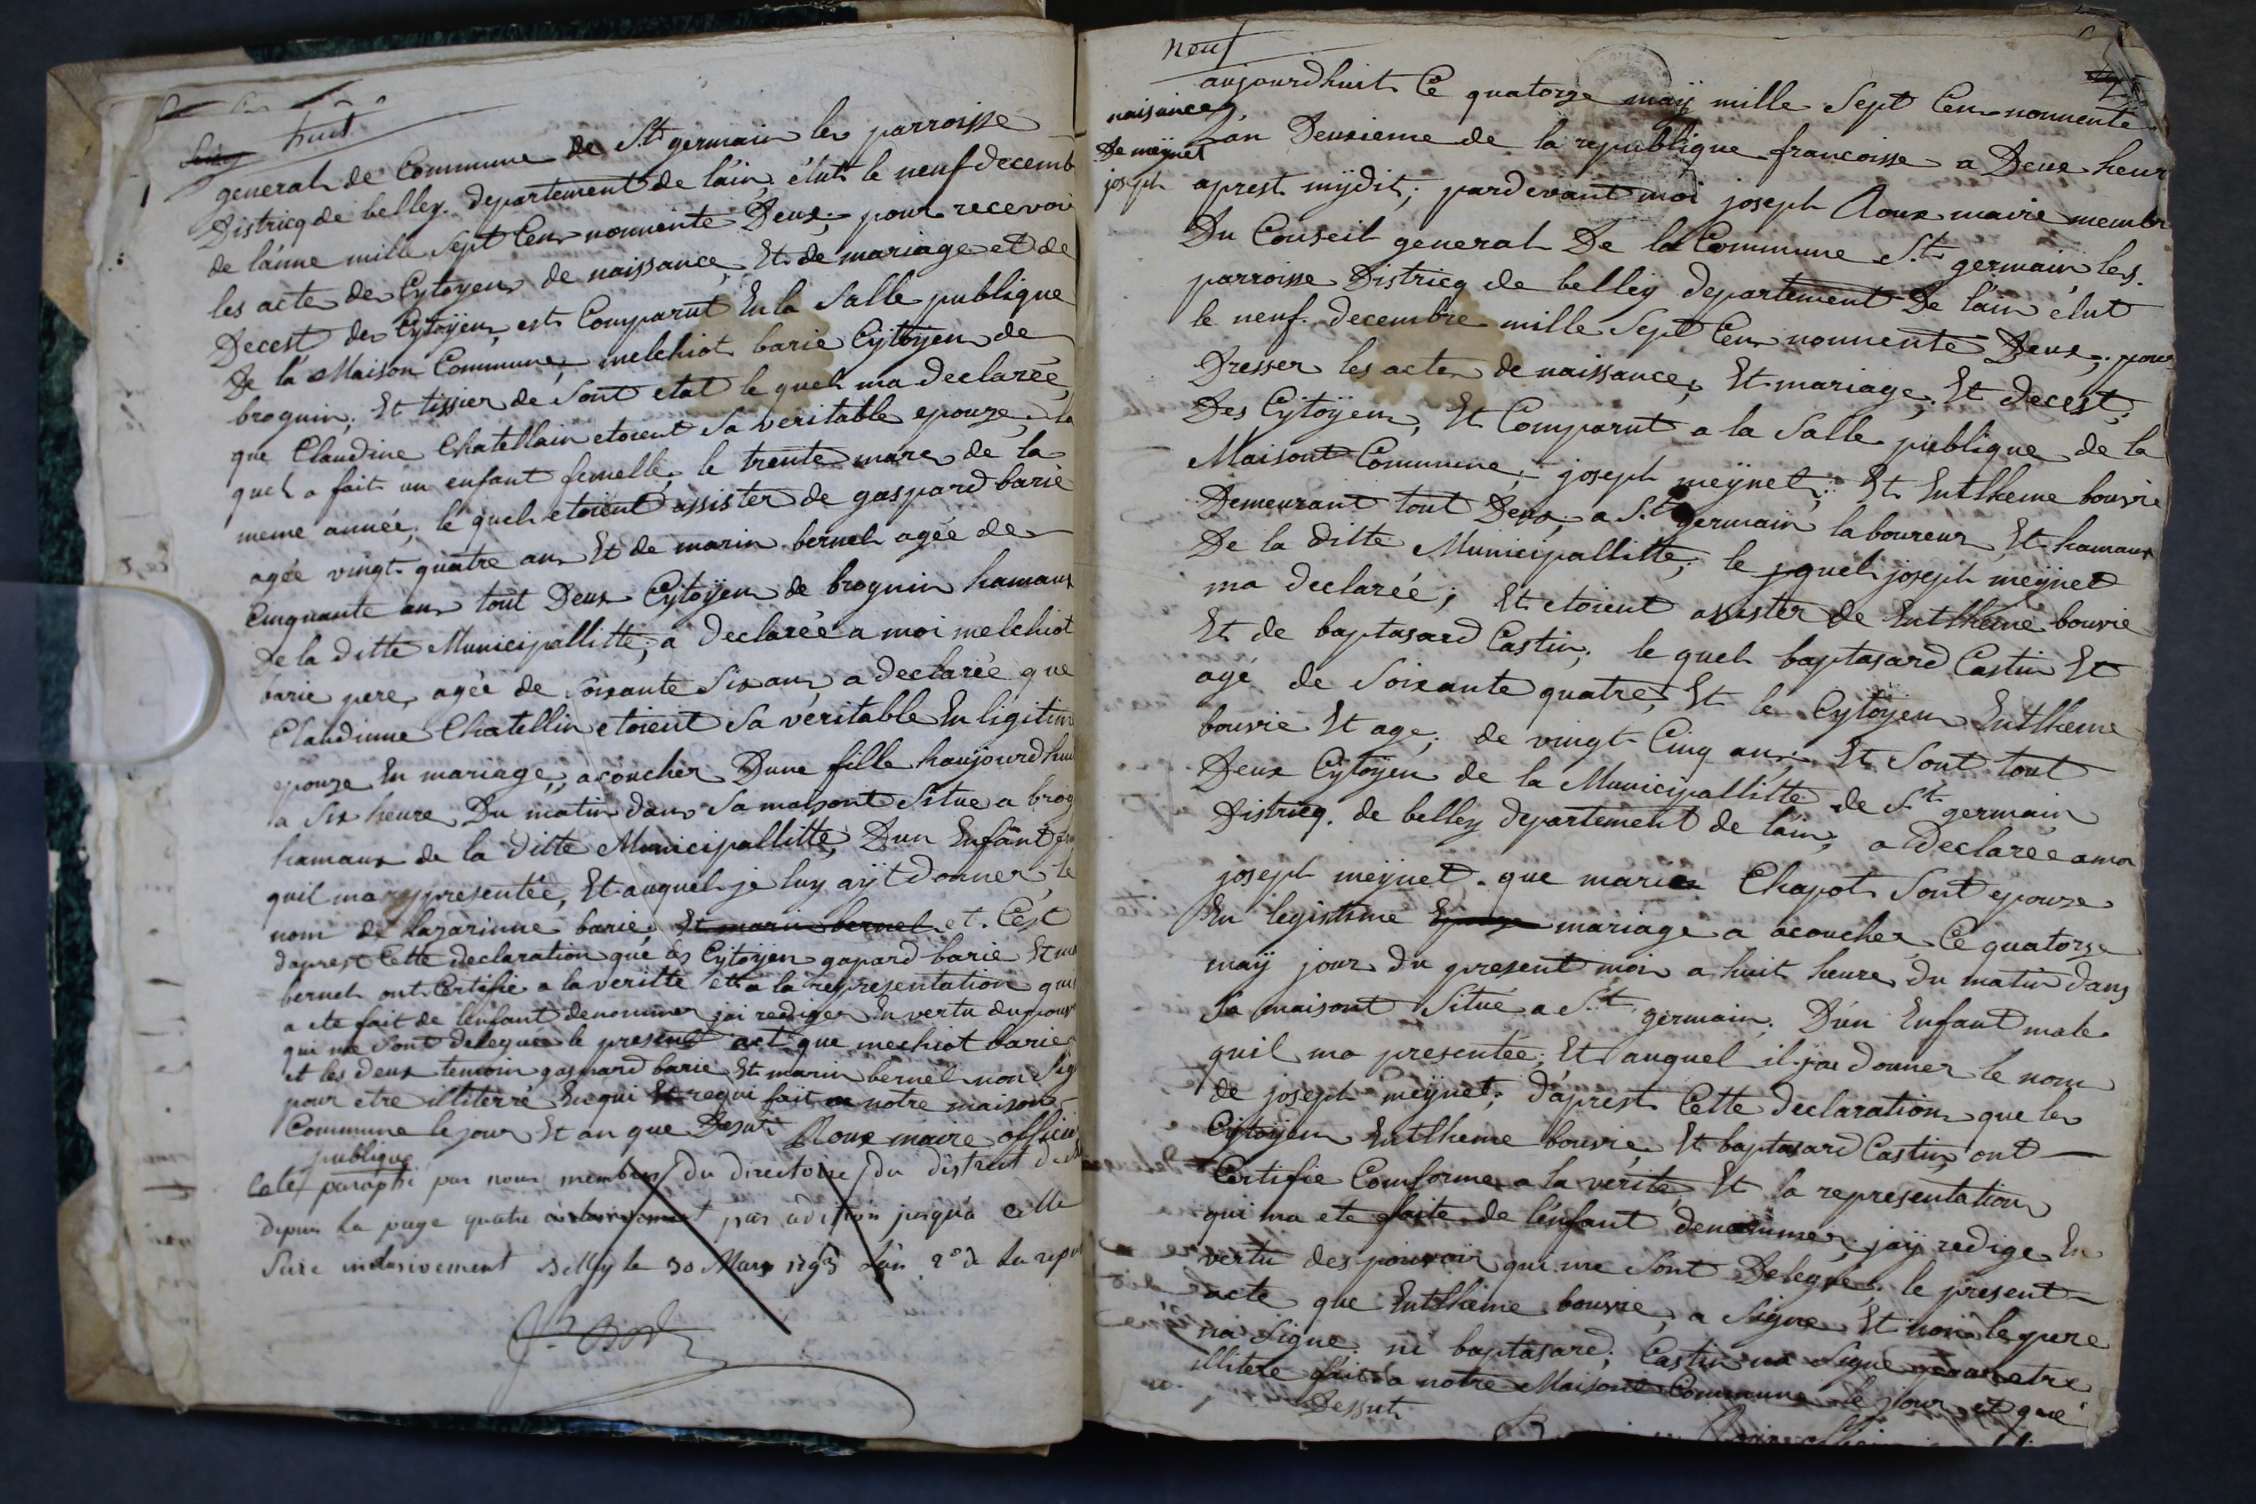 huit
general de Commune de St germain les parroisse
Districq de belley. departement de lain, élut le neuf decemb
de lánne mille Sept Cens nonnente Deux, pour recevoi
les acte des Cytoyens de naissance, Et de mariage et de
Decest des Cytoÿens est Comparut En la Salle publique
De la Maison Commune, melchiot barie Cÿtoÿen de
brognin, Et tissier de Sont etat le quel ma declarée,
que Claudine Chatellain etoient Sa veritable epouze, la
quel a fait un enfant femelle, le trente mars de la
meme année, le quel etoient assister de gaspard barie
agée vingt quatre ans Et de marin bernel agée de
Cinquante ans tout Deux Cytoÿen de brognin hamaux
de la ditte Municipallitté, a declarée a moi melchiot
barie pere, agée de soixante Six ans, a declarée que
Claudinne Chatellin etoient Sa veritable En ligitim
epouze En mariage, acoucher Dune fille haujourdhui
a Six heure Du matin dans Sa maisont Situe a brog
hamaux de la ditte Municipallitté, Dun Enfant fem
quil ma represantée, Et auquel je luy aÿt donner, le
nom de lazarinne barie, Et marin bernel et. Cést
daprest Cette declaration que les Citoÿen gapard barie Et ma
bernel ont Certifié a la veritte et a la representation qui
a ete fait de lenfant denommer jai rediger En vertu du pouv
qui me Sont delegues le present act que mechiot barie
et les deux temoin gaspard barie Et marin bernel non Sig
pour etre illiterré Enqui Et requi fait en notre maison
Commune le jour Et an que Desut Roux maire officie
publique
Coté paraphé par nous membres du directoire du district de
depuis la page quatre par adition jusqu'à cette
Suse inclusivement Belley le 30 Mars 1793 L'an 2e de la repu
neuf
aujourdhuit Ce quatorze maÿ mille Sept Cens nonnente
naisance
De meynet
joseph
an Deuxieme de la republique francoisse a Deux heur
aprest mÿdit, pardevant moi joseph Roux maire membr
Du Conseil general De la Commune St germain les.
parroisse Districq de belley departement De lain élut
le neuf. decembre mille Sept Cens nonnente Deux, pour
Dresser les actes de naissances, Et mariage, Et decest,
Des Cÿtoÿens, Et Comparut a la Salle publique de la
Maisont Commune, joseph meÿnet, Et Enthleme bouvie
Demeurant tout Deux, a St germain laboureur Et hamaux
De la ditte Municipallitte, le quel joseph meÿnet
ma declareé, Et etoient assister de Enthleme bouvie
Et de baptasard Castin, le quel baptasard Castin Et
agé de Soixante quatre, Et le Cytoÿen Enthleme
bouvie Et age, de vingt Cinq ans, Et Sont tout
Deux Cytoÿen de la Municipallitte de St germain
Districq. de belley departement de lain, a declarée a moi
joseph meÿnet. que marie Chapot Sont epouze
En legistime mariage a acoucher, Ce quatorze
maÿ jour du present mois a huit heure, du matin dans
Sa maisont Situé a St germain. Dún Enfant male
quil ma presentée, Et auquel il jai donner le nom
de joseph meÿnet, daprest Cette declaration que les
Citoÿen Enthleme bouvie, Et baptasard Castin ont
Certifie Comforme a la verité, Et la representation
qui ma ete faite de lenfant denommer, jaÿ redige En
vertu des pouvoir qui me Sont Delegué, le present
acte que Enthleme bouvie, a Signe Et non le pere
na Signe ni baptasard, Castin na Signe pour etre
illitere fait a notre Maisont Commune le jour, et que
Dessut